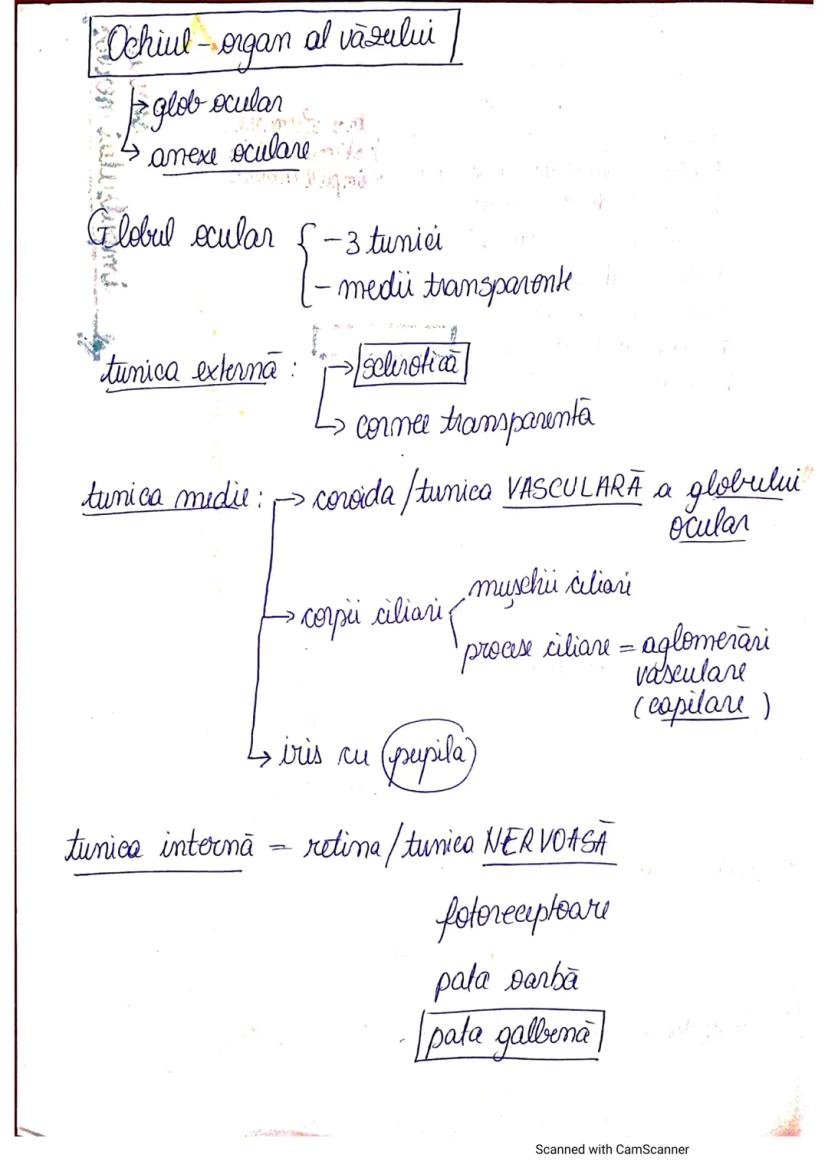 Ochiul - organ al văzului
→ glob ocular
→ anexe oculare
Globul ocular { - 3 tunici
- medii transparente
tunica externă : → sclerotică
→ cornee transparentă
tunica medie : → coroida / tunica VASCULARĂ a globului
ocular
→ corpii ciliari < mușchii ciliari
procese ciliare = aglomerări
vasculare
(capilare)
→ iris cu pupilă
tunica internă = retina / tunica NERVOASĂ
fotoreceptoare
pata oarbă
pata galbenă
Scanned with CamScanner